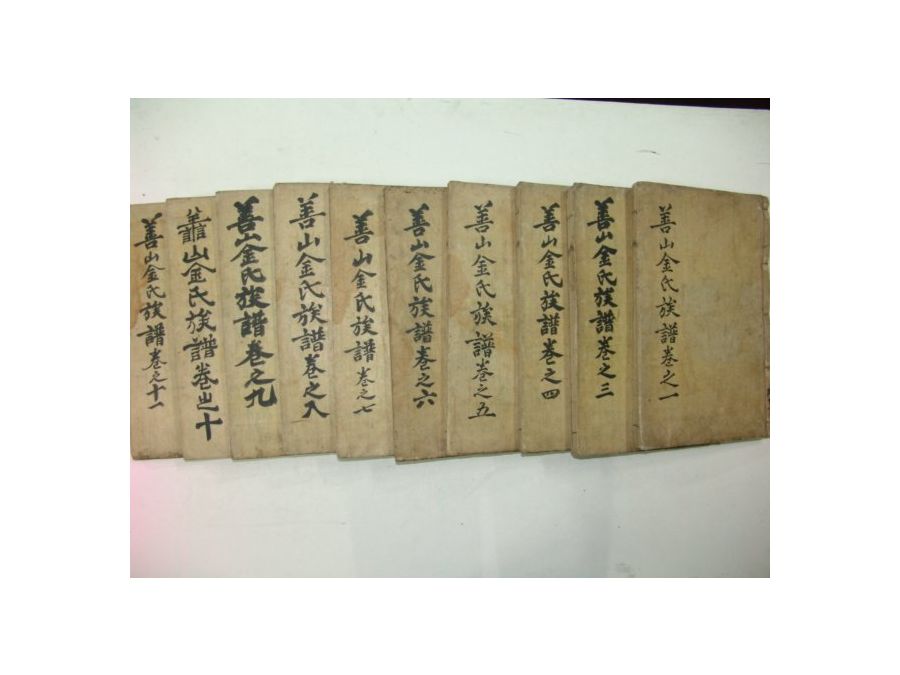 善山金氏族譜卷之一
善山金氏族譜卷之三
善山金氏族譜卷之四
善山金氏族譜卷之五
善山金氏族譜卷之六
善山金氏族譜卷之七
善山金氏族譜卷之八
善山金氏族譜卷之九
譱山金氏族譜卷之十
善山金氏族譜卷之十一